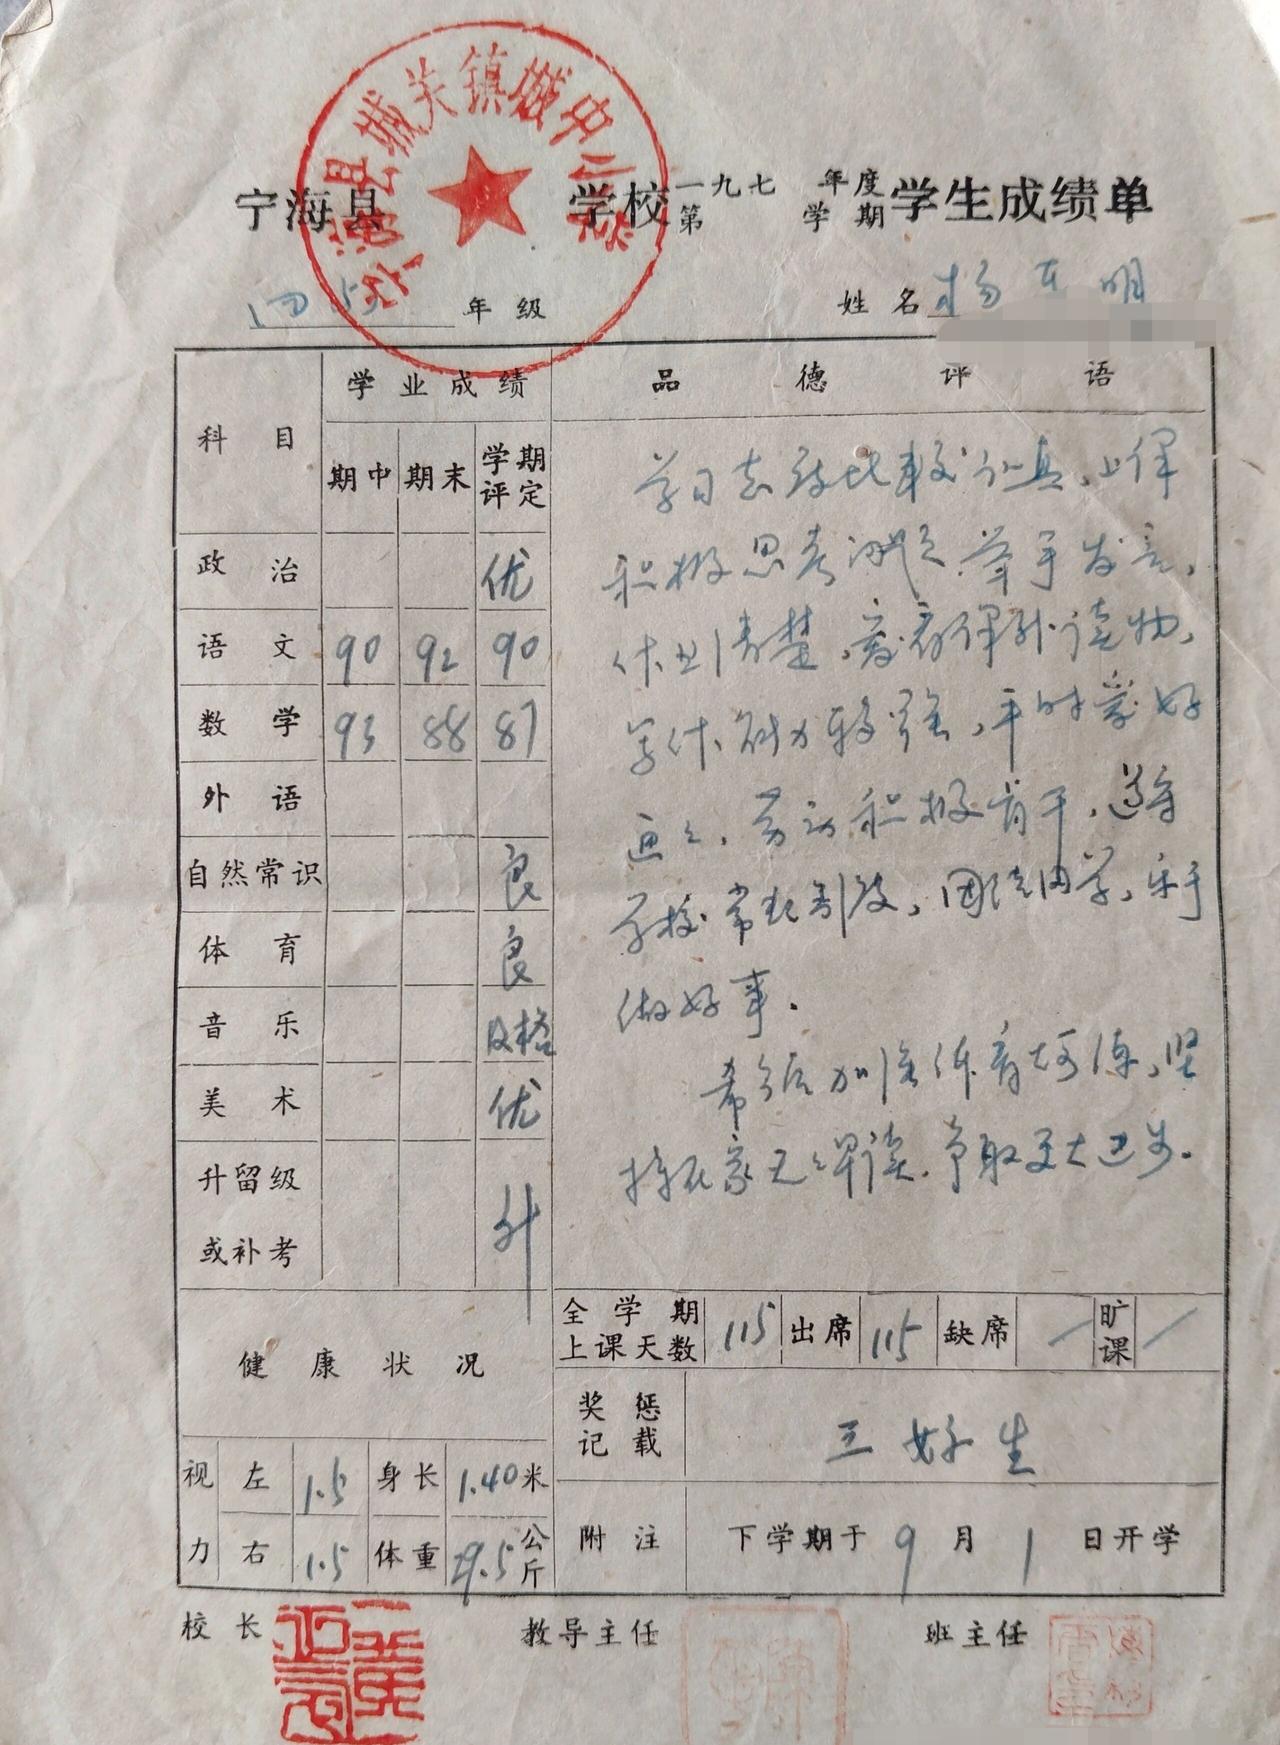 宁海县城关镇城中小学
宁海县 学校 一九七 年度 第 学期 学生成绩单
四 年级 姓名 杨东明
科目 学业成绩 品德评语
期中 期末 学期评定
政治 优
语文 90 92 90
数学 93 88 87
外语
自然常识 良
体育 良
音乐 及格
美术 优
升留级或补考 升
学习态度比较认真,上课
积极思考问题,举手发言,
作业清楚,爱看课外读物,
写作能力较强,平时爱好
画画,劳动积极肯干,遵守
学校常规制度,团结同学,乐于
做好事.
希今后加强体育锻炼,坚
持在家天天早读.争取更大进步.
全学期上课天数 115 出席 115 缺席 / 旷课 /
健康状况
奖惩记载 三好生
视力 左 1.5 身长 1.40米
右 1.5 体重 29.5公斤
附注 下学期于9月1日开学
校长 教导主任 班主任